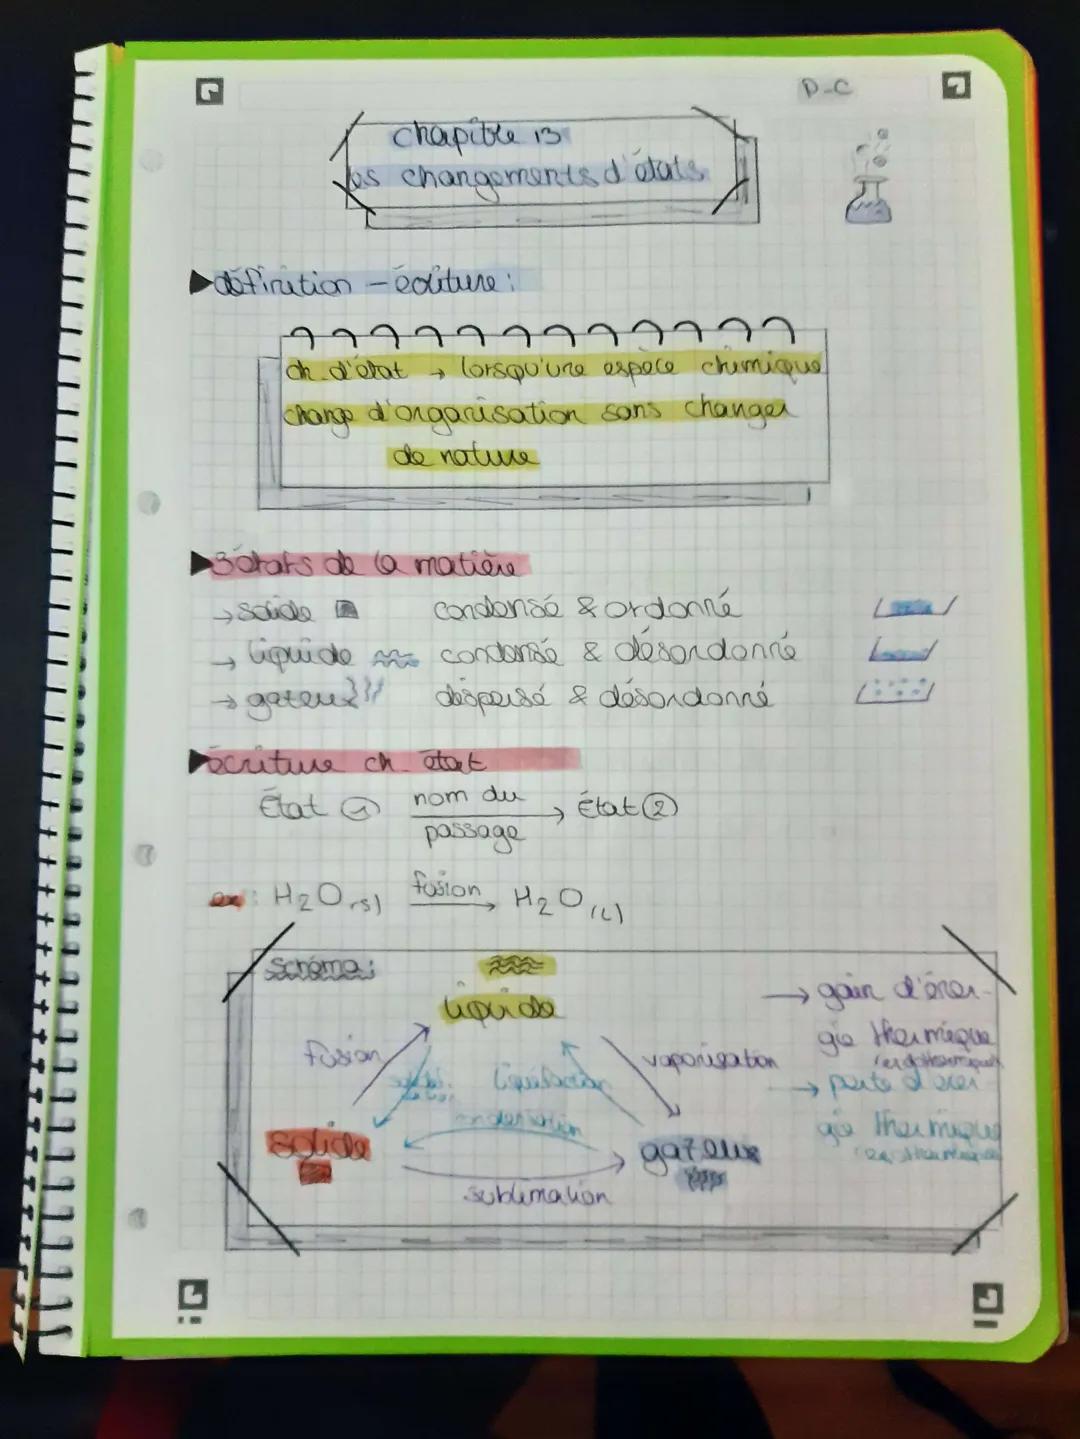 P-C
chapitre 13
les changements d'états
définition - écriture :
ch. d'état → lorsqu'une espèce chimique
change d'organisation sans changer
de nature
3 états de la matière
→ solide condensé & ordonné
→ liquide condensé & désordonné
→ gazeux dispersé & désordonné
écriture ch. état
État ① nom du passage → État ②
ex : H2O(s) fusion → H2O(L)
schéma :
liquide
fusion
vaporisation
liquéfaction
solide
gazeux
sublimation
→ gain d'éner-
gie thermique
→ perte d'éner-
gie thermique